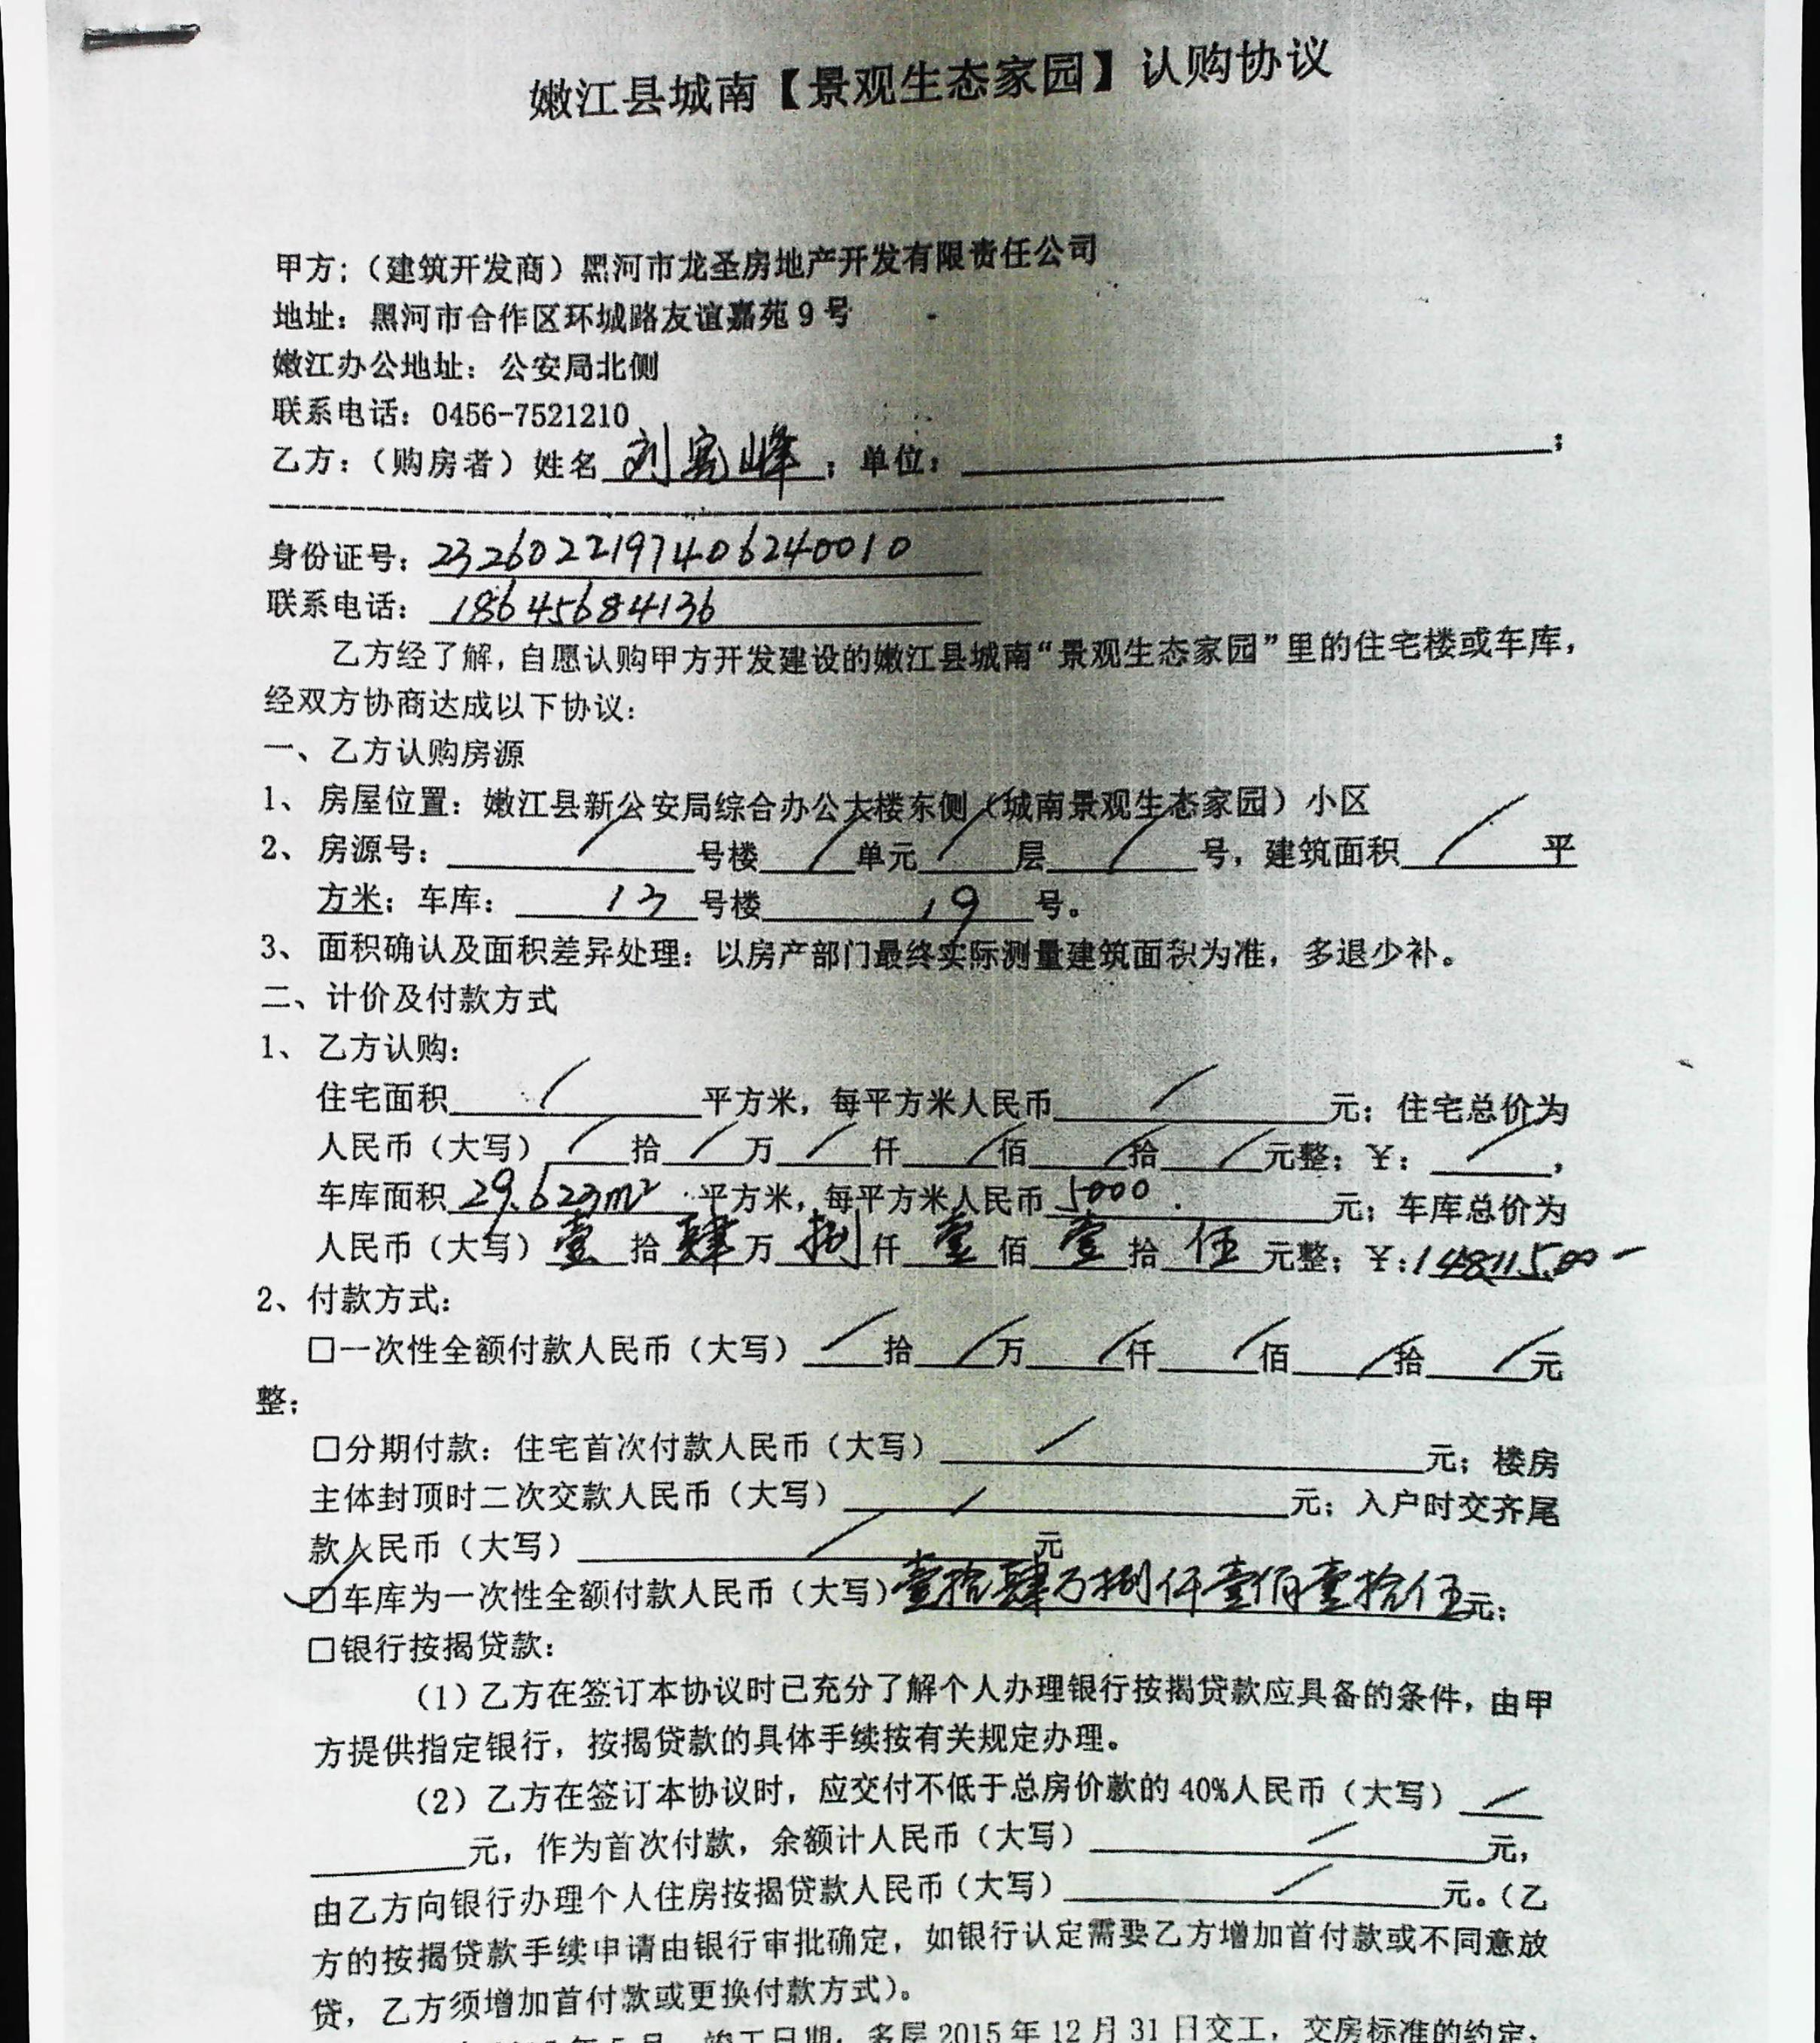 嫩江县城南【景观生态家园】认购协议
甲方:（建筑开发商）黑河市龙圣房地产开发有限责任公司
地址：黑河市合作区环城路友谊嘉苑9号
嫩江办公地址：公安局北侧
联系电话：0456-7521210
乙方：（购房者）姓名 刘宪峰 ；单位：________；
身份证号：232602197406240010
联系电话：18645684136
乙方经了解，自愿认购甲方开发建设的嫩江县城南“景观生态家园”里的住宅楼或车库，
经双方协商达成以下协议：
一、乙方认购房源
1、房屋位置：嫩江县新公安局综合办公大楼东侧（城南景观生态家园）小区
2、房源号：/号楼/单元/层/号，建筑面积/平
方米；车库：13号楼19号。
3、面积确认及面积差异处理：以房产部门最终实际测量建筑面积为准，多退少补。
二、计价及付款方式
1、乙方认购：
住宅面积/平方米，每平方米人民币/元；住宅总价为
人民币（大写）/拾/万/仟/佰/拾/元整；￥：/，
车库面积29.623m²平方米，每平方米人民币5000.元；车库总价为
人民币（大写）壹拾肆万捌仟壹佰壹拾伍元整；￥:148115.00-
2、付款方式：
□一次性全额付款人民币（大写）/拾/万/仟/佰/拾/元
整；
□分期付款：住宅首次付款人民币（大写）/元；楼房
主体封顶时二次交款人民币（大写）/元；入户时交齐尾
款人民币（大写）/元
☑车库为一次性全额付款人民币（大写）壹拾肆万捌仟壹佰壹拾伍元；
□银行按揭贷款：
（1）乙方在签订本协议时已充分了解个人办理银行按揭贷款应具备的条件，由甲
方提供指定银行，按揭贷款的具体手续按有关规定办理。
（2）乙方在签订本协议时，应交付不低于总房价款的40%人民币（大写）/
元，作为首次付款，余额计人民币（大写）/元，
由乙方向银行办理个人住房按揭贷款人民币（大写）/元。（乙
方的按揭贷款手续申请由银行审批确定，如银行认定需要乙方增加首付款或不同意放
贷，乙方须增加首付款或更换付款方式）。
年5月，竣工日期：多层2015年12月31日交工，交房标准的约定：